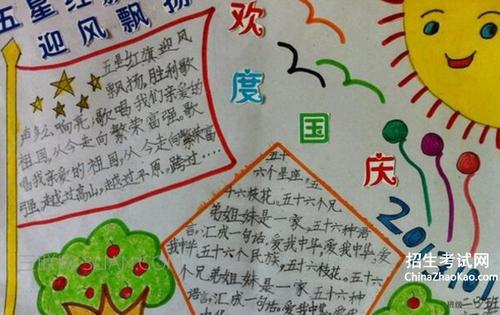 五星红
迎风飘扬
欢
度
国
庆
五星红旗迎风
飘扬,胜利歌
声多么响亮,歌唱我们亲爱的
祖国,从今走向繁荣富强。歌
唱我亲爱的祖国,从今走向繁荣富
强。越过高山,越过平原。跨过....
五十
六个星座,五
十六枝花。五十六个兄
弟姐妹是一家,五十六种语
言,汇成一句话,爱我中华,爱我中华,爱
我中华。五十六个民族,
五十六枝花。五十六
个兄弟姐妹是一家,五十六种
语言,汇成一句话,爱我中华,爱
招生考试网
ChinaZhaoKao.com
班级